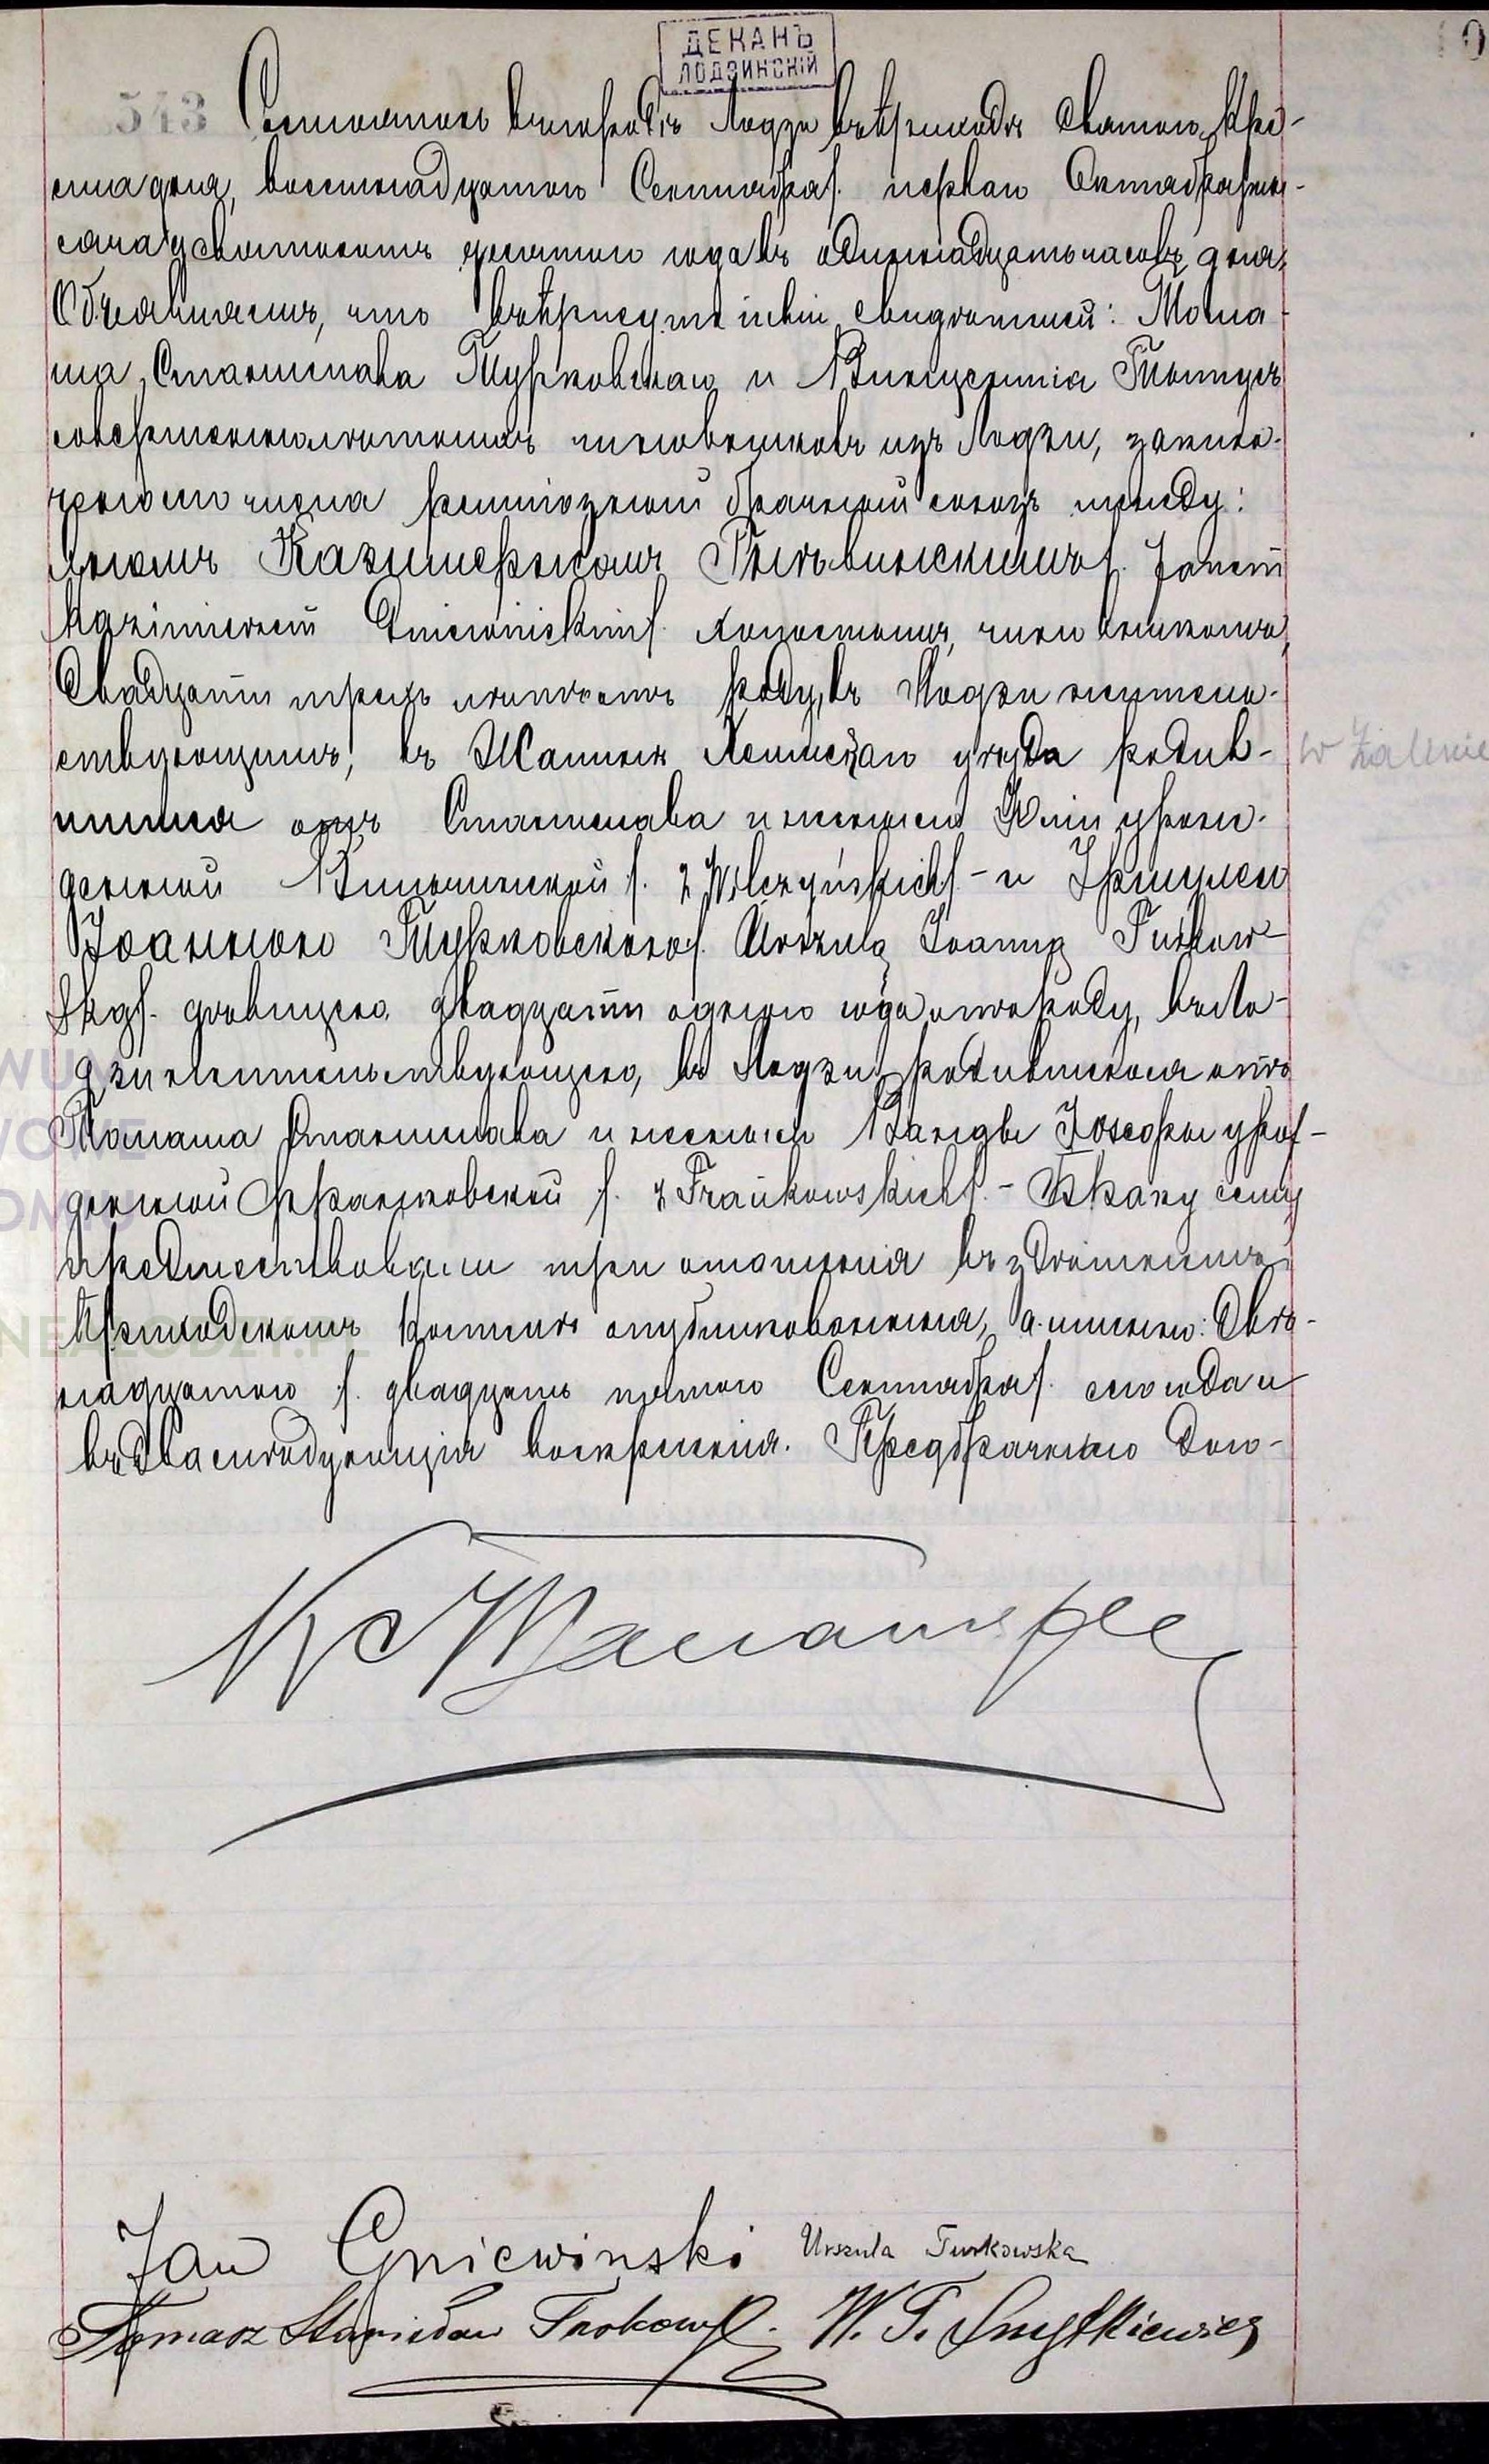 ДЕКАНЪ
ЛОДЗИНСКІЙ
543
Состоялось въ городѣ Лодзи въ приходѣ Святого Кре-
ста дня, восемнадцатого Сентября /. перваго Октября/ ты-
сяча девятисотъ десятого года въ одиннадцать часовъ дня.
Объявляемъ, что въ присутствіи свидѣтелей: Тома-
ша Станислава Турковскаго и Винцентія
совершеннолѣтнихъ чиновниковъ изъ Лодзи, заклю-
чено сего числа религіозный брачный союзъ между:
Яномъ Казимержомъ Гнѣвинскимъ /. Janem
Kazimierzem Gniewińskim/. холостымъ, чиновникомъ,
двадцати трехъ лѣтъ отъ роду, въ Лодзи житель-
ствующимъ, въ Жалине уѣзда родив-
шимся отъ Станислава и жены его урожд-
денной Вильчинской /. z Wilczyńskich/ - и Уршулею
Іоанною Турковскою /. Urszulą Joanną Turkow-
ską/. дѣвицею, двадцати одного года отъ роду, въ Ло-
дзи жительствующею, въ Лодзи родившеюся отъ
Томаша Станислава и жены его Ванды Юзефы урож-
денной Франковской /. z Frankowskich/. - Браку сему
предшествовали три оглашенія въ здѣшнемъ
Приходскомъ Костелѣ опубликованныя, а именно: двѣ-
надцатого /. двадцать пятого Сентября/. сего года и
въ два слѣдующія воскресенія. Предбрачнаго дого-
w Żalinie
Jan Gniewiński Urszula Turkowska
Tomasz Stanisław Turkowski. W. T. Smytkiewicz